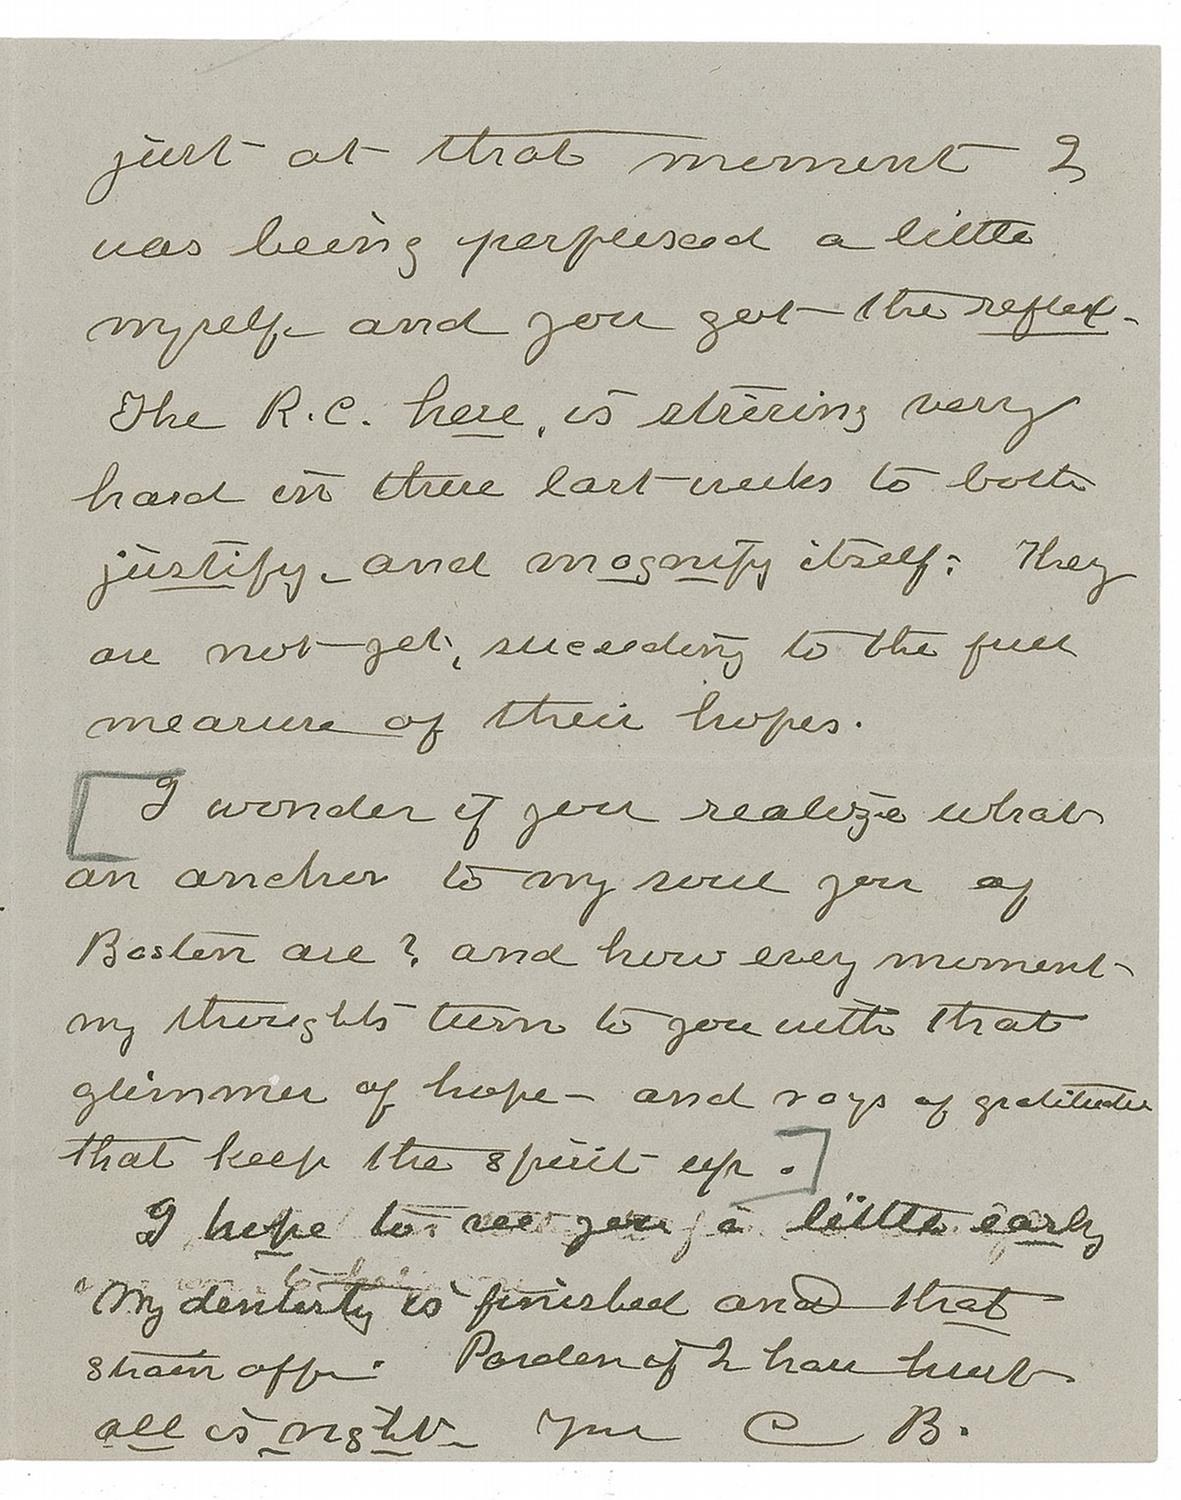 just at that moment I
was being perplexed a little
myself and you got the reflex.
The R.C. here, is striving very
hard in these last weeks to both
justify, and magnify itself: They
are not yet, succeeding to the full
measure of their hopes.
[I wonder if you realize what
an anchor to my soul you of
Boston are? and how every moment
my thoughts turn to you with that
glimmer of hope - and rays of gratitude
that keep the spirit up.]
I hope to see you a little early
My dentistry is finished and that
strain off. Pardon if I have hurt
all is right. Your C B.